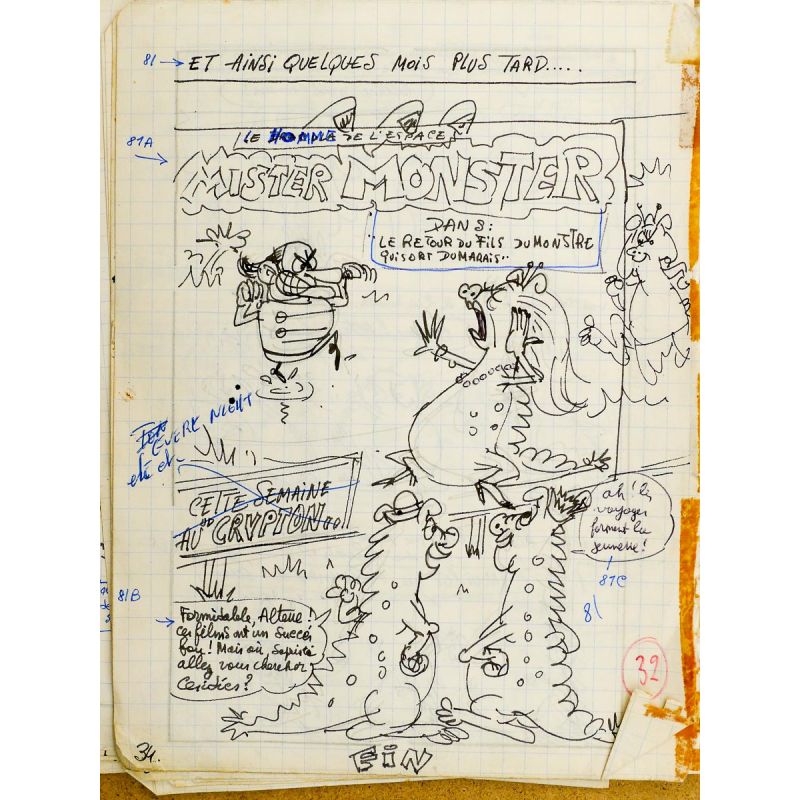 81
ET AINSI QUELQUES MOIS PLUS TARD.....
81A
LE HOMME DE L'ESPACE
MISTER MONSTER
DANS:
LE RETOUR DU FILS DU MONSTRE
QUI SORT DU MARAIS..
EVERE NIGHT
CETTE SEMAINE
AU "CRYPTON"
ah! les
voyages
forment la
jeunesse!
81C
81
81B
Formidable,
ces films ont un succès
fou! Mais où,
allez vous chercher
ces idées?
32
34.
FIN